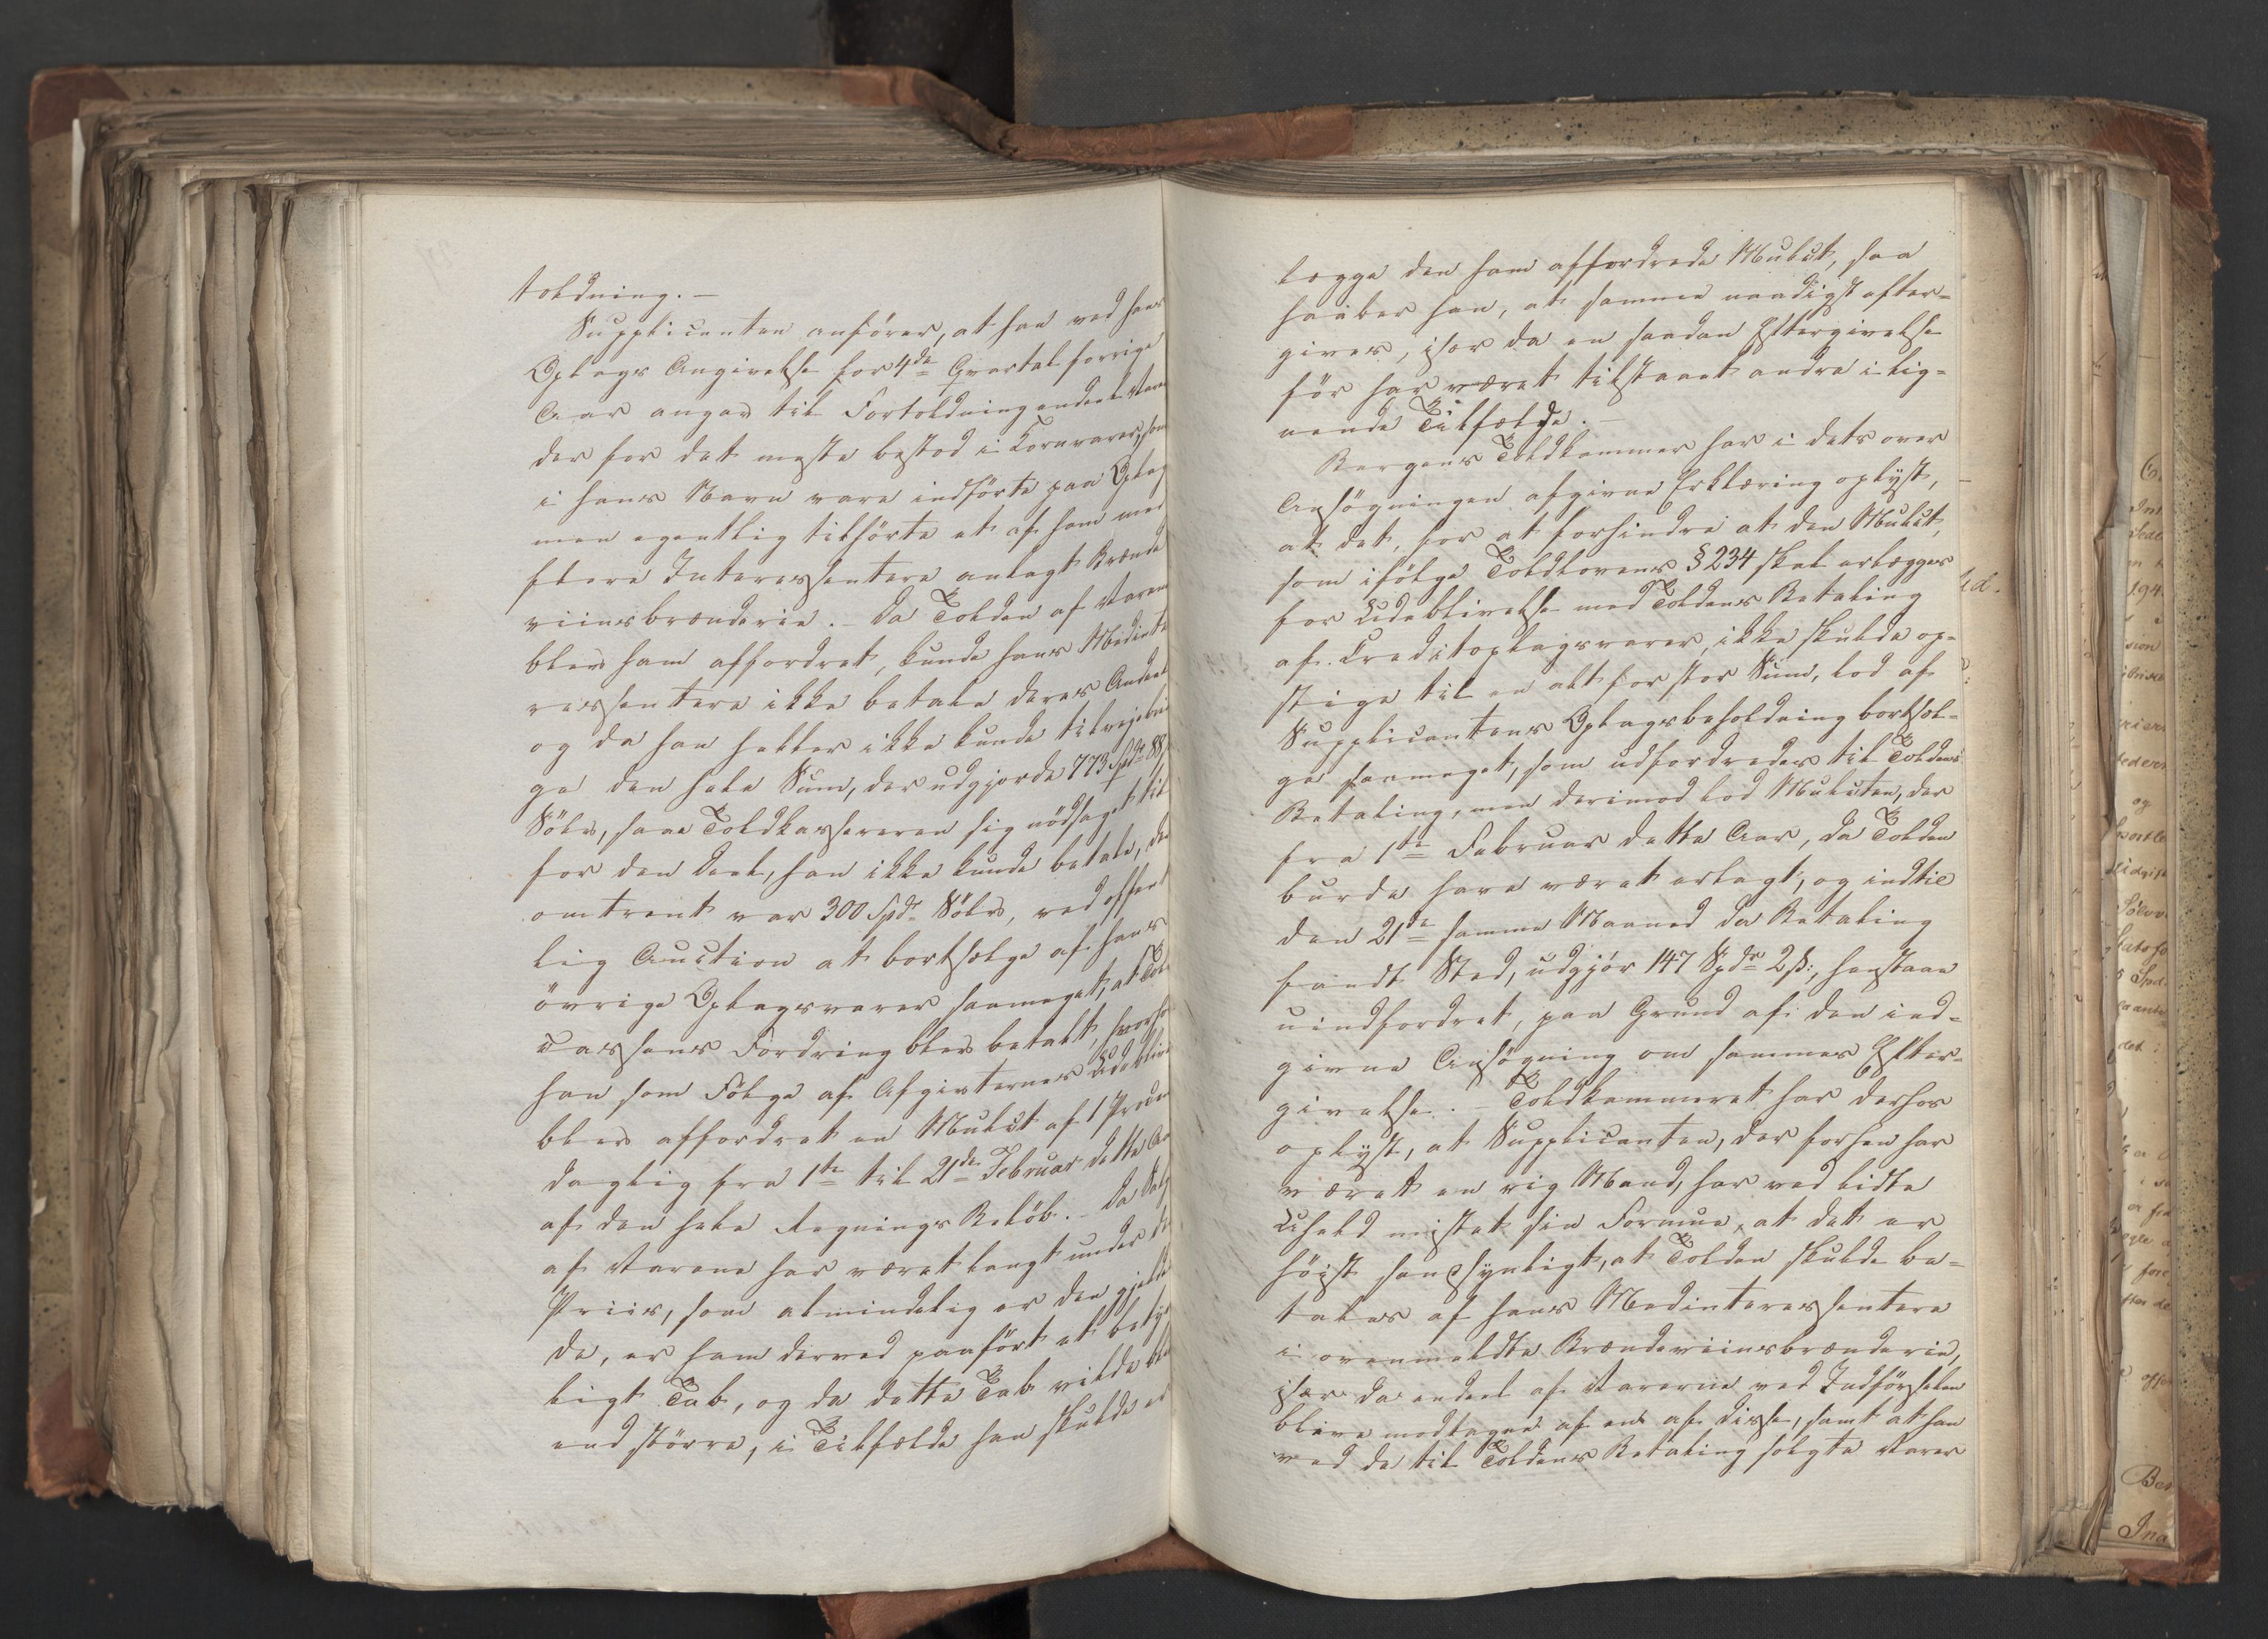 toldning. —
Supplicanten anförer, at han ved hans
Oplags Angivelse for 4de Qvartal forrige
Aar angav til Fortoldning endeel Vare
der for det meste bestod i Kornvarer, som
i hans Navn vare indförte paa Oplag
men egentlig tilhörte et af ham med
flere Interessentere anlagt Brænde
viinsbrænderie. – Da Tolden af Varene
blev ham affordret, kunde hans Medinte
ressentere ikke betale deres Andeel
og da han heller ikke kunde tilvejebrin
ge den hele Sum, der udgjorde 773 Spd. 88
Sölv, saae Toldkassereren sig nödsaget til
for den Deel, han ikke kunde betale, der
omtrent var 300 Spd. Sölv, ved offent
lig Auction at bortsælge af hans
övrige Oplagsvarer saameget, at Told
cassens Fordring blev betalt, hvorhos
han som Fölge af Afgivternes Udeblive
blev affordret en Mulct af 1 Procent
daglig fra 1te til 21de Februar dette Aar
af den hele Regnings Belöb. – Da Salg
af Varene har været langt under de
Priis, som almindelig er den gjelden
de, er ham derved paafört et betyde
ligt Tab, og da dette Tab vilde blive
end större, i Tilfælde han skulde er
lægge den ham affordrede Mulct, saa
haaber han, at samme naadigst efter=
gives, især da en saadan Eftergivelse
för har været tilstaaet andre i lig=
nende Tilfælde. —
Bergens Toldkammer har i dets over
Ansögningen afgivne Erklæring oplyst,
at det, for at forhindre at den Mulct,
som ifölge Toldlovens § 234 skal erlægges
for Udeblivelse med Toldens Betaling
af Creditoplagsvarer, ikke skulde op=
stige til en alt for stor Sum, lod af
Supplicantens Oplagsbeholdning bortsæl=
ge saameget, som udfordredes til Toldens
Betaling, men derimod lod Mulcten, der
fra 1te Februar dette Aar, da Tolden
burde have været erlagt, og indtil
den 21de samme Maaned da Betaling
fandt Sted, udgjör 147 Spdr 2 ß:, henstaae
uindfordret, paa Grund af den ind=
givne Ansögning om sammes Efter=
givelse. – Toldkammeret har derhos
oplyst, at Supplicanten, der forhen har
været en rig Mand, har ved lidte
Uheld mistet sin Formue, at det er
höist sandsynligt, at Tolden skulde be=
tales af hans Medinteressentere
i ovenmeldte Brændeviinsbrænderie,
især da endeel af Varerne ved Indförselen
bleve modtagne af en af disse, samt at han
ved de til Toldens Betaling solgte Varer